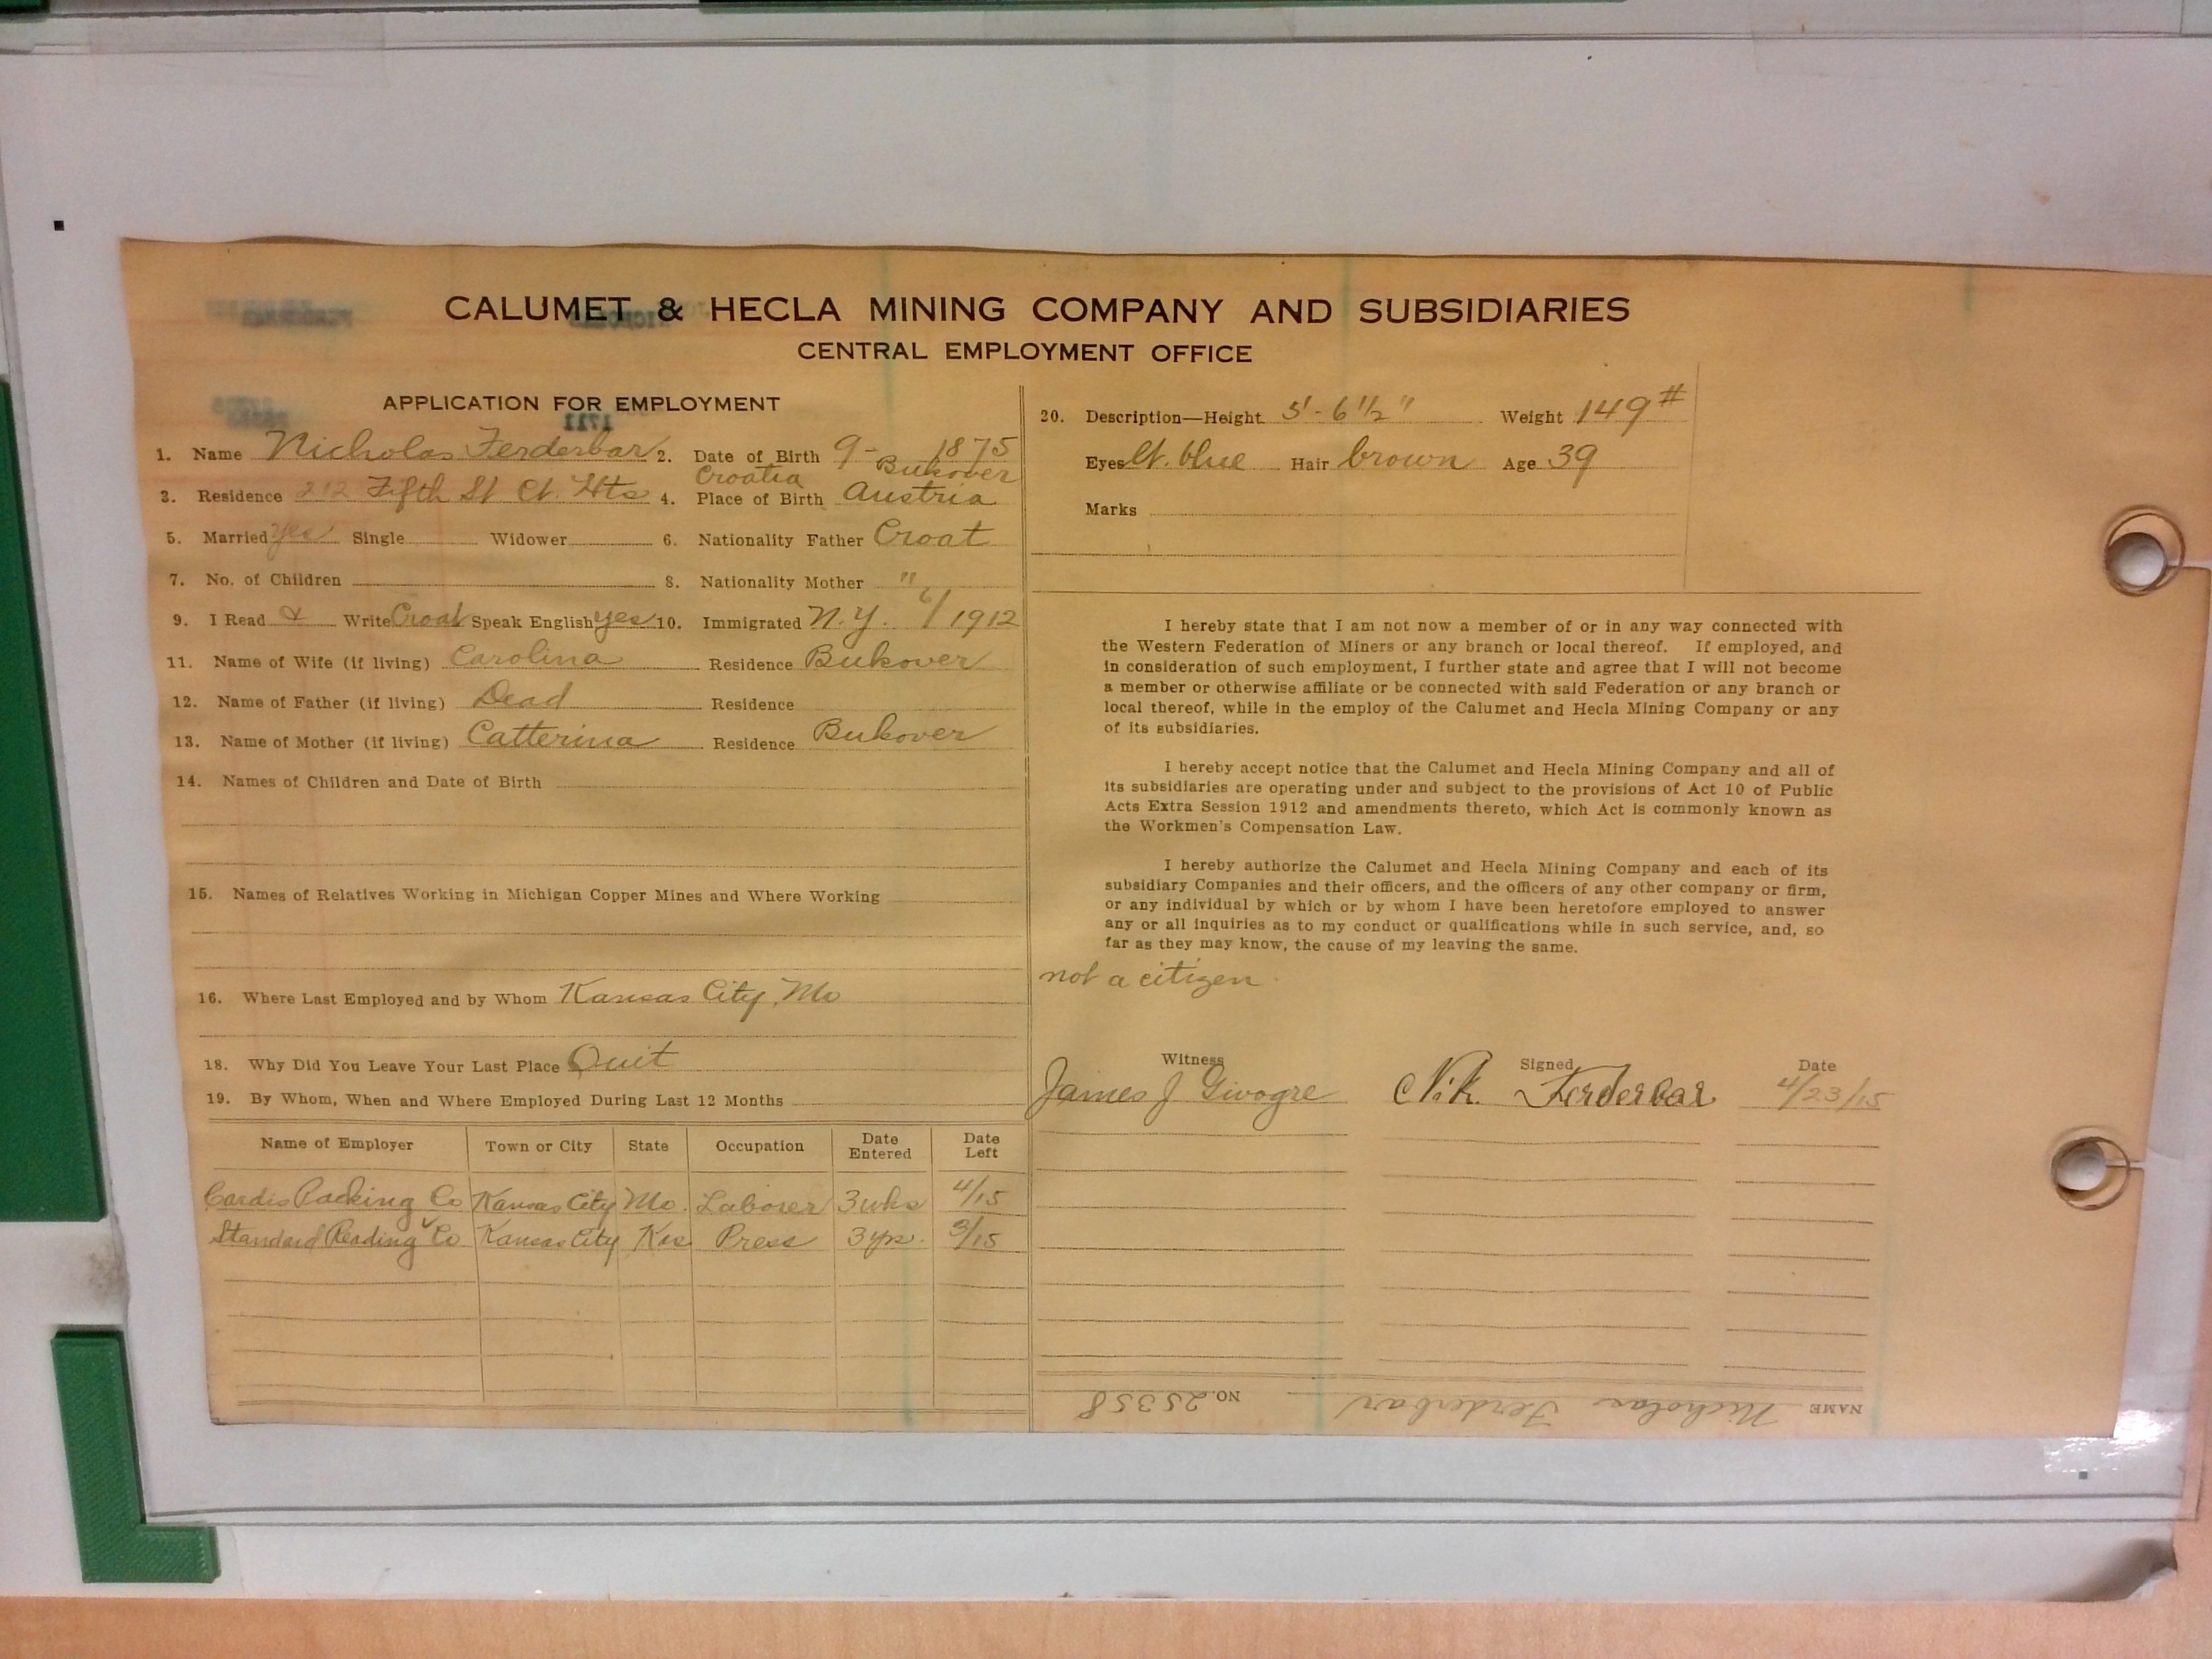 CALUMET & HECLA MINING COMPANY AND SUBSIDIARIES
CENTRAL EMPLOYMENT OFFICE
APPLICATION FOR EMPLOYMENT
1711
1. Name Nicholas Ferderbar 2. Date of Birth 9- 1875
Croatia Bukover
3. Residence 212 Fifth St Ct. Hts 4. Place of Birth Austria
5. Married yes Single Widower 6. Nationality Father Croat
7. No. of Children 8. Nationality Mother "
9. I Read & Write Croat Speak English yes 10. Immigrated N.Y. 6/1912
11. Name of Wife (if living) Carolina Residence Bukover
12. Name of Father (if living) Dead Residence
13. Name of Mother (if living) Catterina Residence Bukover
14. Names of Children and Date of Birth
15. Names of Relatives Working in Michigan Copper Mines and Where Working
16. Where Last Employed and by Whom Kansas City, Mo
18. Why Did You Leave Your Last Place Quit
19. By Whom, When and Where Employed During Last 12 Months
Name of Employer Town or City State Occupation Date Entered Date Left
Packing Co Kansas City Mo. Laborer 3 wks 4/15
Standard Co Kansas City Kas Press 3 yrs. 3/15
20. Description—Height 5'-6 1/2" Weight 149#
Eyes lt. blue Hair brown Age 39
Marks
I hereby state that I am not now a member of or in any way connected with
the Western Federation of Miners or any branch or local thereof. If employed, and
in consideration of such employment, I further state and agree that I will not become
a member or otherwise affiliate or be connected with said Federation or any branch or
local thereof, while in the employ of the Calumet and Hecla Mining Company or any
of its subsidiaries.
I hereby accept notice that the Calumet and Hecla Mining Company and all of
its subsidiaries are operating under and subject to the provisions of Act 10 of Public
Acts Extra Session 1912 and amendments thereto, which Act is commonly known as
the Workmen's Compensation Law.
I hereby authorize the Calumet and Hecla Mining Company and each of its
subsidiary Companies and their officers, and the officers of any other company or firm,
or any individual by which or by whom I have been heretofore employed to answer
any or all inquiries as to my conduct or qualifications while in such service, and, so
far as they may know, the cause of my leaving the same.
not a citizen
Witness Signed Date
James J Nik. Ferderbar 4/23/15
NAME Nicholas Ferderbar NO. 25358